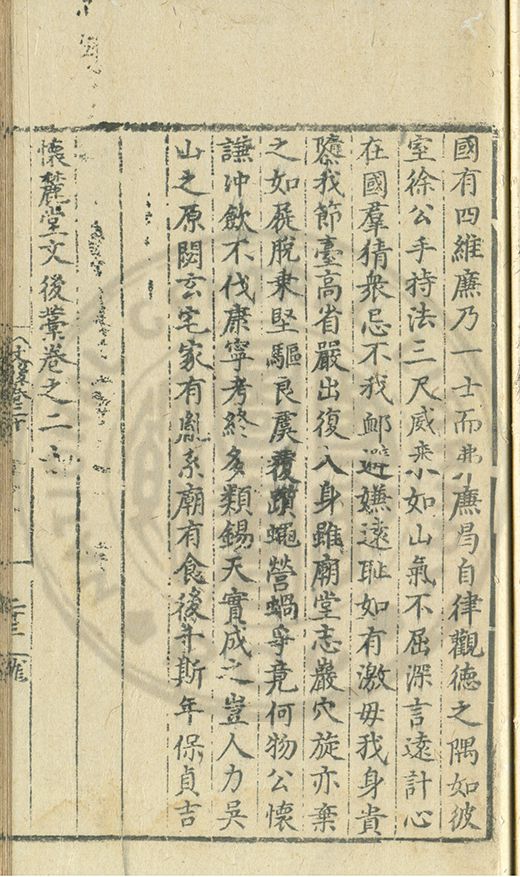 國有四維廉乃一士而弗廉曷自律觀德之隅如彼
室徐公手持法三尺威乘小如山氣不屈深言遠計心
在國羣猜衆忌不我䘏避嫌遠耻如有激毋我身貴
隳我節臺高省嚴出復入身雖廟堂志巖穴旋亦棄
之如屣脫乗堅驅良虞覆躓蠅營蝸爭竟何物公懷
謙沖飲不伐康寧考終多類錫天實成之豈人力吳
山之原閟玄宅家有胤系廟有食後千斯年保貞吉
懷麓堂文後藁卷之二